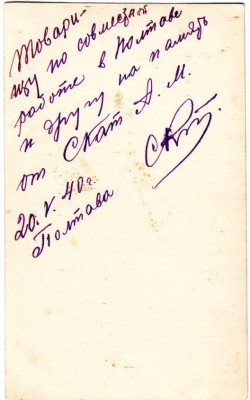 Товари-
щу по совместной
работе в Полтаве
и другу на память
от Скат А. М.
20.V.40г.
Полтава